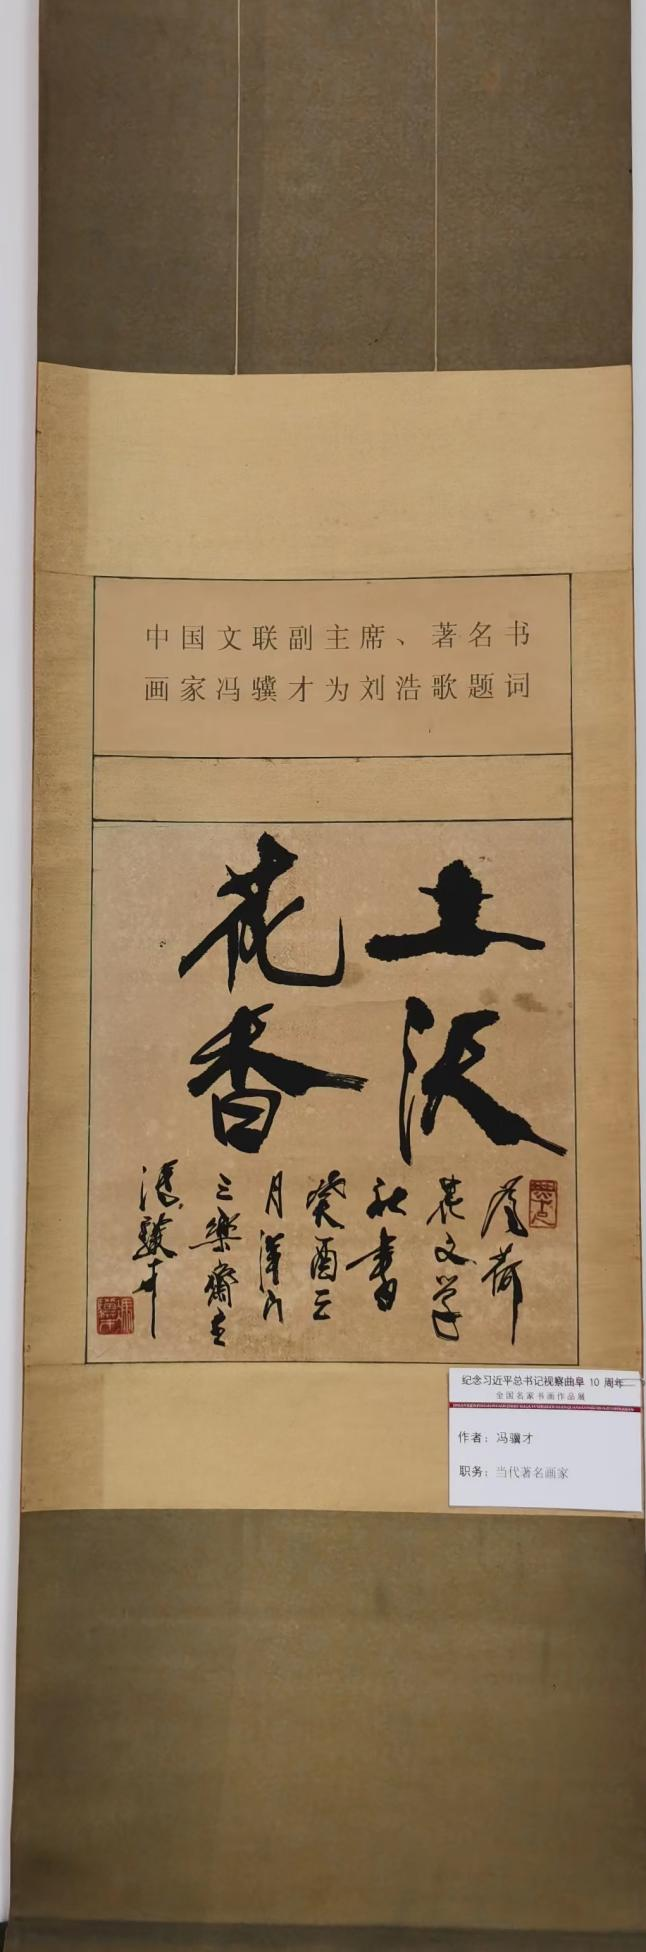 中国文联副主席、著名书
画家冯骥才为刘浩歌题词
土沃
花香
为荷
花文学
社书
癸酉三
月津门
三乐斋主
冯骥才
纪念习近平总书记视察曲阜 10 周年
全国名家书画作品展
作者：冯骥才
职务：当代著名画家